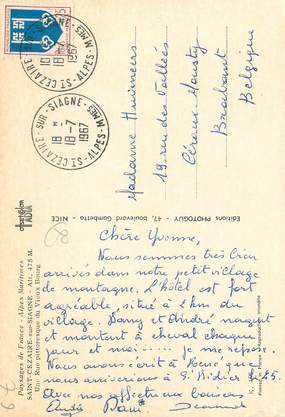 ST CEZAIRE - SUR - SIAGNE - ALPES-MMES
18-7
1967
ST CEZAIRE - SUR - SIAGNE - ALPES-MMES
18-7
1967
Madame
19, rue des Vallées
Céroux-Mousty
Brabant
Belgique
Editions PHOTOGUY - 47, boulevard Gambetta - NICE
Paysages de France - Alpes Maritimes
SAINT-CEZAIRE-sur-SIAGNE - Alt. 475 M.
Une Rue pittoresque du Vieux Bourg
Chère Yvonne,
Nous sommes très bien
arrivés dans notre petit village
de montagne. L'hôtel est fort
agréable, situé à 1 km du
village. Dany et André nagent
et montent à cheval chaque
jour et moi... je me repose.
Nous avons écrit à
nous arriverions à St Didier le 25.
Avec nos affectueux baisers
André Dani